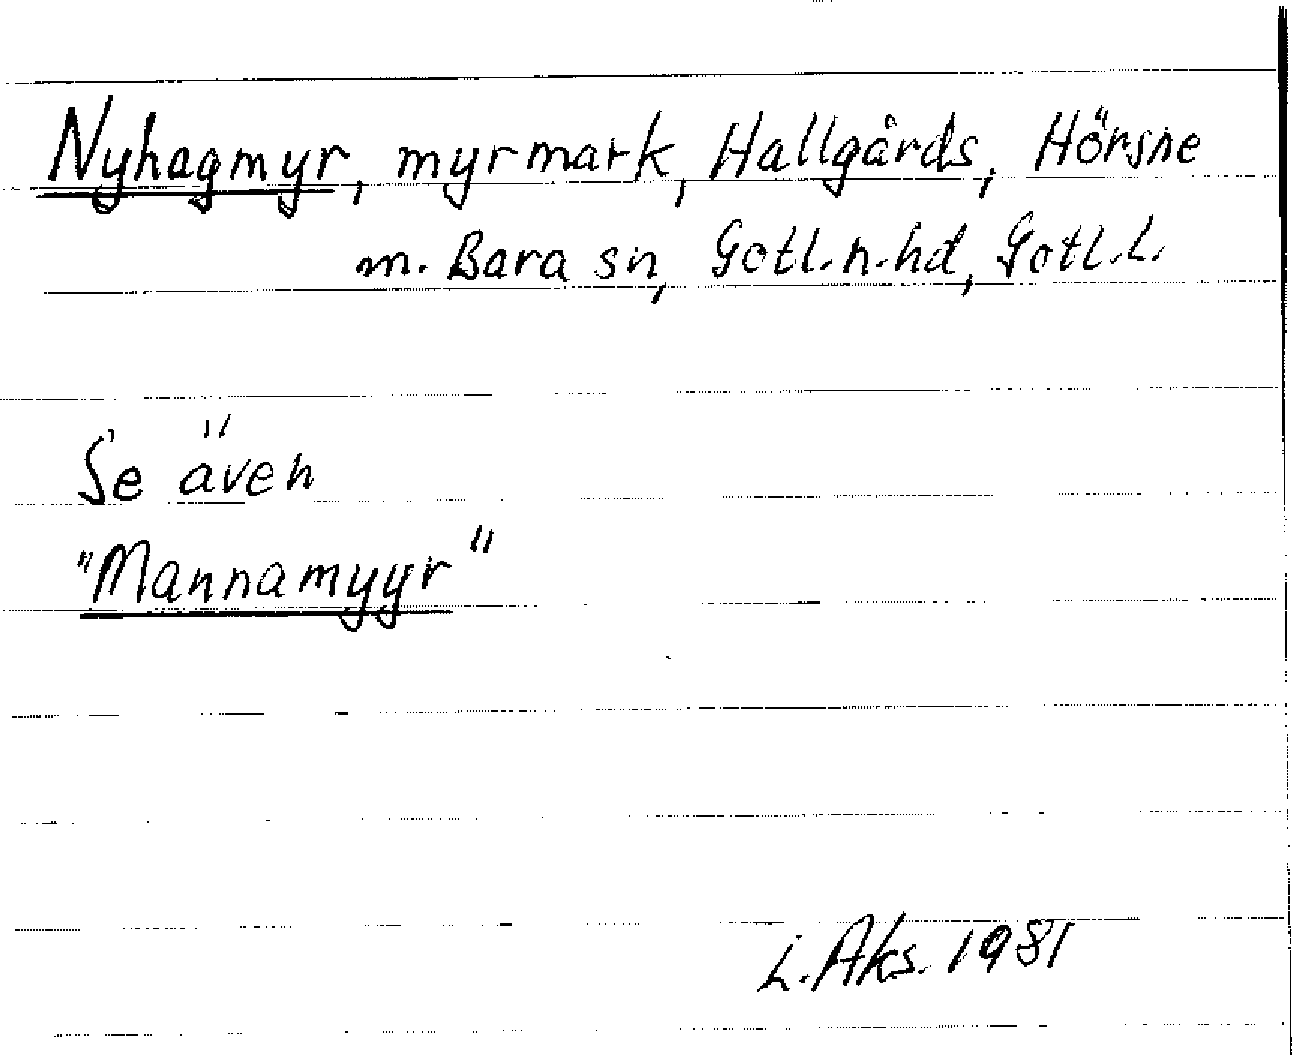 Nyhagmyr, myrmark, Hallgårds, Hörsne
m. Bara sn, Gotl.n.hd, Gotl.L.
Se även
"Mannamyyr"
L.Aks. 1981